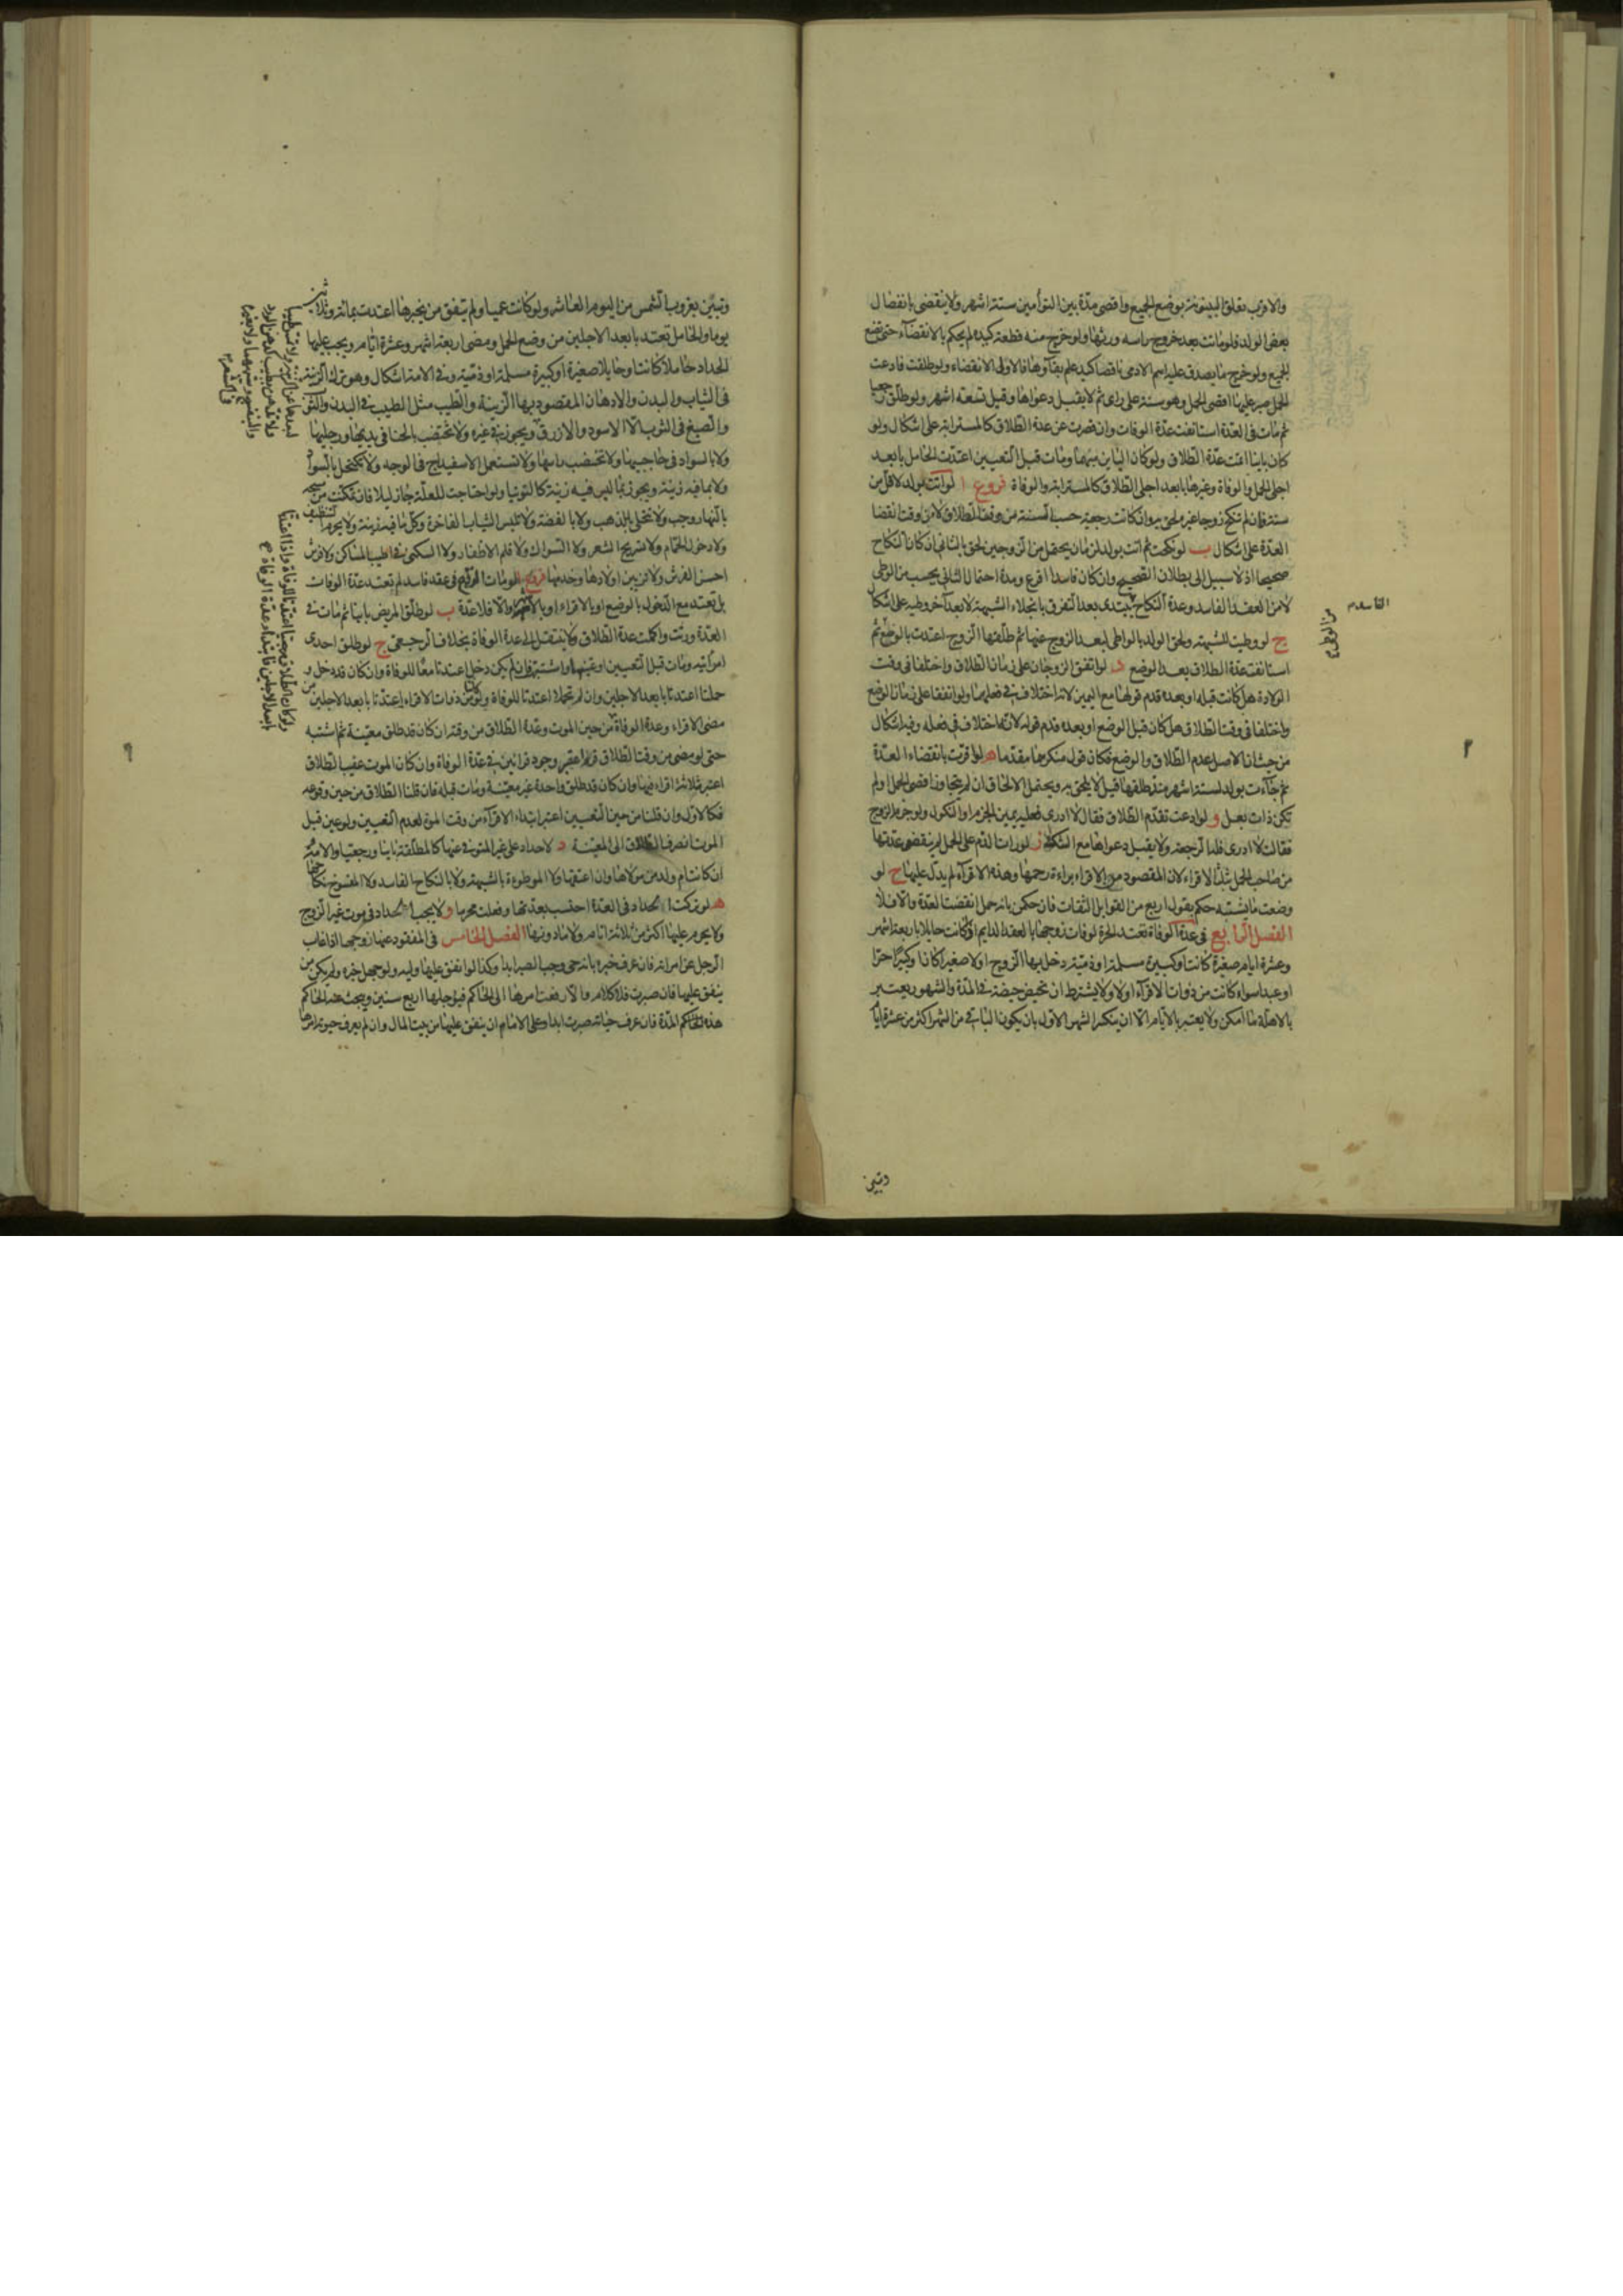 والاقرب تعلق البينونة بوضع الجميع واقصى مدة بين التوأمين ستة اشهر ولا ينقضى بانفصال
بعض الولد فلو ماتت بعد خروج راسه ورثها ولو خرج منه قطعة كيده لم يحكم بالانقضاء حتى تضع
الجميع ولو خرج ما يصدق عليه اسم الادمى ناقصا كيد علم بقاؤها فالاولى الانقضاء ولو طلقت فادعت
الحمل صبر عليها اقصى الحمل وهو سنة على راى ثم لا يقبل دعواها وقيل تسعة اشهر ولو طلق رجعيا
ثم مات فى العدة استانفت عدة الوفات وان قصرت عن عدة الطلاق كالمسترابة على اشكال ولو
كان باينا اتمت عدة الطلاق ولو كان الباين مبهما ومات قبل التعيين اعتدت الحامل بابعد
اجلى الحمل والوفاة وغيرها بابعد اجلى الطلاق كالمسترابة والوفاة فروع ا لو اتت بولد لاقل من
سنة فان لم تنكح زوجا غيره لحق به وان كانت رجعية حسبت السنة من وقت الطلاق لا من وقت انقضا
العدة على اشكال ب لو نكحت ثم اتت بولد لزمان يحتمل من الزوجين لحق بالثانى ان كان النكاح
صحيحا اذ لا سبيل الى بطلان الصحيح وان كان فاسدا اقرع ومدة احتمال الثانى يحسب من الوطى
لا من العقد الفاسد وعدة النكاح يبتدى بعد التفرق بانجلاء الشبهة لا بعد آخر وطيه على اشكال
ج لو وطيت للشبهة ولحق الولد بالواطى لبعد الزوج عنها ثم طلقها الزوج اعتدت بالوضع ثم
استانفت عدة الطلاق بعد الوضع د لو اتفق الزوجان على زمان الطلاق واختلفا فى وقت
الولادة هل كانت قبله او بعده قدم قولها مع اليمين لانه اختلاف فى فعلها ولو اتفقا على زمان الوضع
واختلفا فى وقت الطلاق هل كان قبل الوضع او بعده قدم قوله لانه اختلاف فى فعله وفيه اشكال
من حيث ان الاصل عدم الطلاق والوضع فكان قول منكرهما مقدما ه لو اقرت بانقضاء العدة
ثم جاءت بولد لستة اشهر منذ طلقها قيل لا يلحق به ويحتمل الالحاق ان لم يتجاوز اقصى الحمل ولم
تكن ذات بعل و لو ادعت تقدم الطلاق فقال لا ادرى فعليه يمين الجزم او النكول ولو جزم الزوج
فقالت لا ادرى فله الرجعة ولا يقبل دعواها مع الشك ز لو رات الدم على الحمل لم ينقض عدتها
من صاحب الحمل بتلك الاقراء لان المقصود من الاقراء براءة رحمها وهذه الاقراء لم يدل عليها ح لو
وضعت ما يشتبه حكم بقول اربع من القوابل الثقات فان حكمن بانه حمل انقضت العدة والا فلا
الفصل الرابع فى عدة الوفاة تعتد الحرة لوفات زوجها بالعقد الدايم اذا كانت حايلا باربعة اشهر
وعشرة ايام صغيرة كانت او كبيرة مسلمة او ذمية دخل بها الزوج اولا صغيرا كان او كبيرا حرا
او عبدا سواء كانت من ذوات الاقراء اولا ولا يشترط ان تحيض حيضة فى المدة والشهور يعتبر
بالاهلة ما امكن ولا يعتبر بالايام الا ان ينكسر الشهر الاول بان يكون الباقى من الشهر اكثر من عشرة ايام
وتبين
وتبين بغروب الشمس من اليوم العاشر ولو كانت عميا ولم يتفق من يخبرها اعتدت بمائة وثلاثين
يوما والحامل تعتد بابعد الاجلين من وضع الحمل ومضى اربعة اشهر وعشرة ايام ويجب عليها
الحداد حاملا كانت او حايلا صغيرة او كبيرة مسلمة او ذمية وفى الامة اشكال وهو ترك الزينة
فى الثياب والبدن والادهان المقصود بها الزينة والطيب مثل المطيب فى البدن والثوب
والصبغ فى الثوب الا الاسود والازرق ويجوز فى غيره ولا تختضب بالحنا فى يديها ورجليها
ولا بالسواد فى حاجبيها ولا تخضب راسها ولا تستعمل الاسفيداج فى الوجه ولا تكتحل بالسواد
ولا بما فيه زينة ويجوز بما ليس فيه زينة كالتوتيا ولو احتاجت للعلة جاز ليلا فان تمكنت من مسحه
بالنهار وجب ولا تتحلى بالذهب ولا بالفضة ولا تلبس الثياب الفاخرة وكل ما فيه زينة ولا يحرم التنظيف
ولا دخول الحمام ولا تسريح الشعر ولا السواك ولا قلم الاظفار ولا السكنى فى اطيب المساكن ولا فرش
احسن الفرش ولا تزيين اولادها وخدمها فروع ا لو مات الزوج فى عقد فاسد لم تعتد عدة الوفات
بل تعتد مع الدخول بالوضع او بالاقراء او بالاشهر والا فلا عدة ب لو طلق المريض باينا ثم مات فى
العدة ورثت واكملت عدة الطلاق ولا ينتقل الى عدة الوفاة بخلاف الرجعى ج لو طلق احدى
امراتيه ومات قبل التعيين او عينها واشتبه فان لم يكن دخل اعتدتا معا للوفاة وان كان قد دخل و
حملتا اعتدتا بابعد الاجلين وان لم تحملا اعتدتا للوفاة ولو كانتا من ذوات الاقراء اعتدتا بابعد الاجلين من
مضى الاقراء وعدة الوفاة من حين الموت وعدة الطلاق من وقته ان كان قد طلق معينة ثم اشتبه
حتى لو مضى من وقت الطلاق قرء اعتبر وجود قرئين فى عدة الوفاة وان كان الموت عقيب الطلاق
اعتبر ثلاثة اقراء فيها وان كان قد طلق واحدة غير معينة ومات قبله فان قلنا الطلاق من حين وقوعه
فكالاول وان قلنا من حين التعيين اعتبر ابتداء الاقراء من وقت الموت لعدم التعيين ولو عين قبل
الموت انصرف الطلاق الى المعينة د لا حداد على غير المتوفى عنها كالمطلقة باينا ورجعيا والامة
ان كانت ام ولد من مولاها وان اعتقها ولا الموطوءة بالشبهة ولا بالنكاح الفاسد ولا المفسوخ نكاحها
ه لو تركت الحداد فى العدة احتسب بعدتها وفعلت محرما و لا يجب الحداد فى موت غير الزوج
ولا يحرم عليها اكثر من ثلاثة ايام ولا ما دونها الفصل الخامس فى المفقود عنها زوجها اذا غاب
الرجل عن امراته فان عرف خبره بانه حى وجب الصبر ابدا وكذا لو انفق عليها وليه ولو جهل خبره ولم يكن من
ينفق عليها فان صبرت فلا كلام والا رفعت امرها الى الحاكم فيؤجلها اربع سنين ويبحث عنه الحاكم
هذه المدة فان عرف حياته صبرت ابدا وعلى الامام ان ينفق عليها من بيت المال وان لم يعرف حيوته امرها